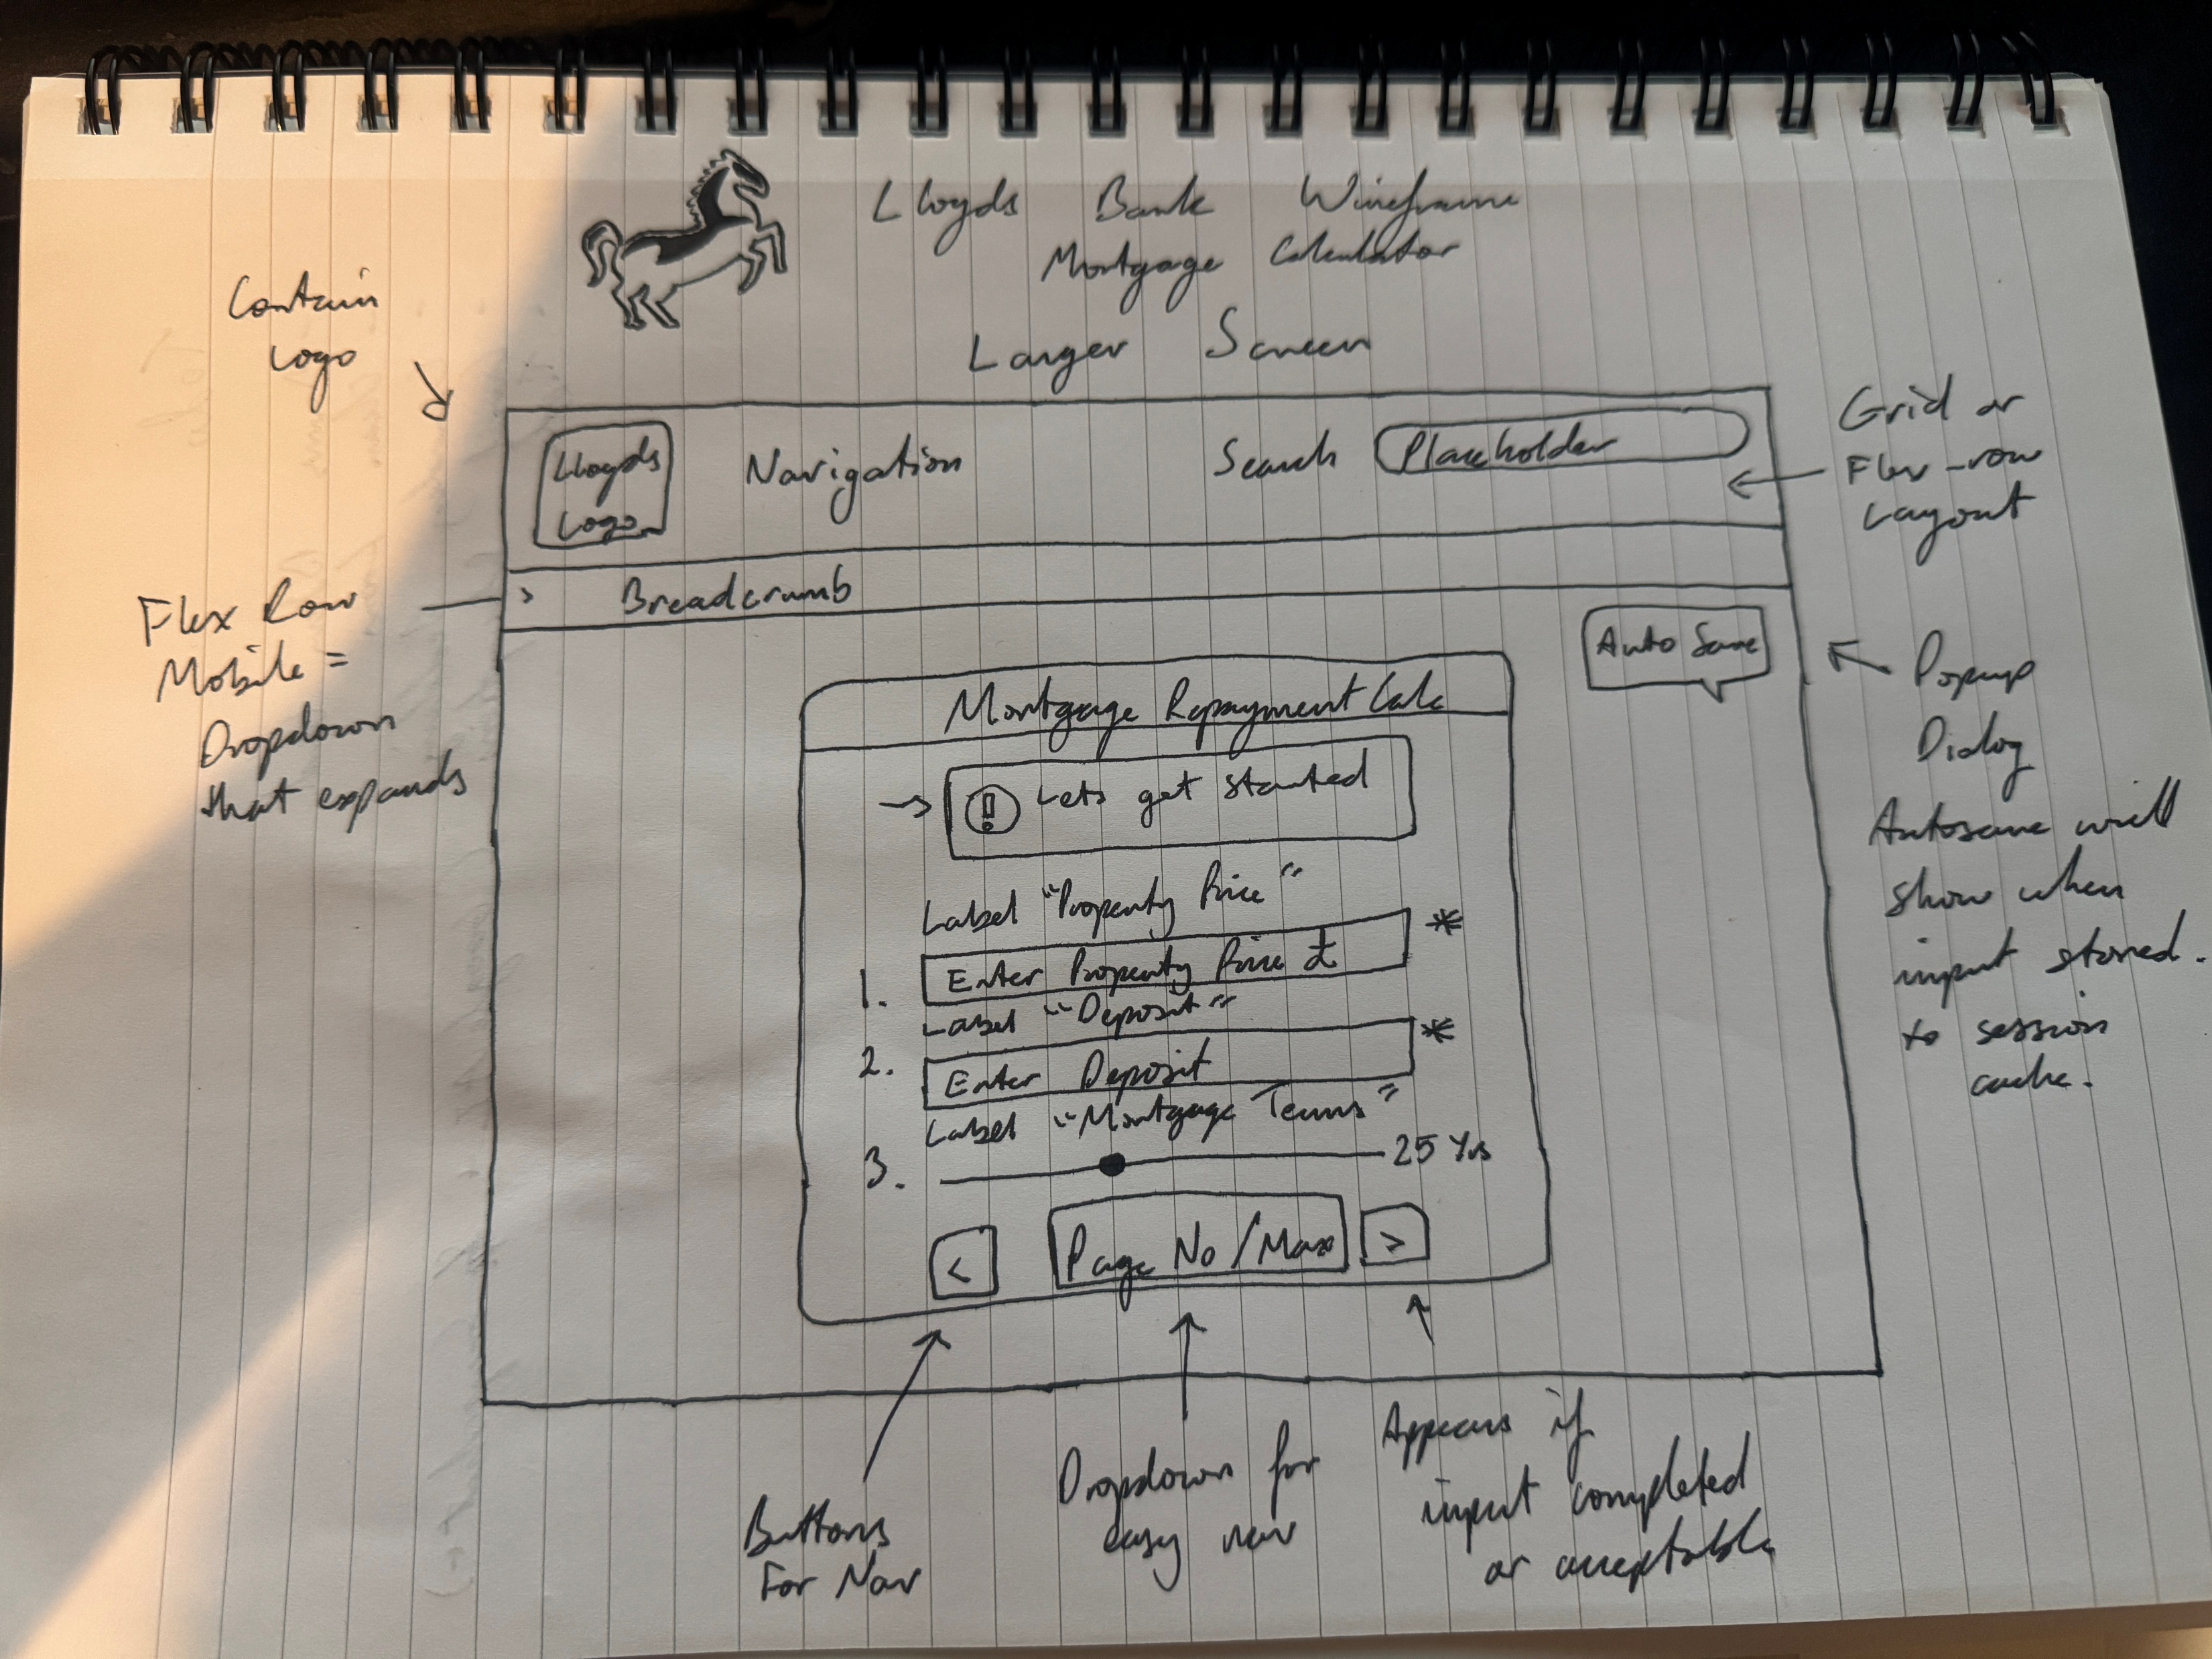 Lloyds Bank Wireframe
Mortgage Calculator
Larger Screen
Contain
Logo
Lloyds
Logo
Navigation
Search
Placeholder
Grid or
Flex-row
Layout
> Breadcrumb
Flex Row
Mobile =
Dropdown
that expands
Auto Save
Popup
Dialog
Autosave will
show when
input stored
to session
cache.
Mortgage Repayment Calc
! Lets get started
Label "Property Price"
1. Enter Property Price £ *
Label "Deposit"
2. Enter Deposit *
Label "Mortgage Terms"
3. 25 Yrs
< Page No/Max >
Buttons
For Nav
Dropdown for
easy nav
Appears if
input completed
or acceptable